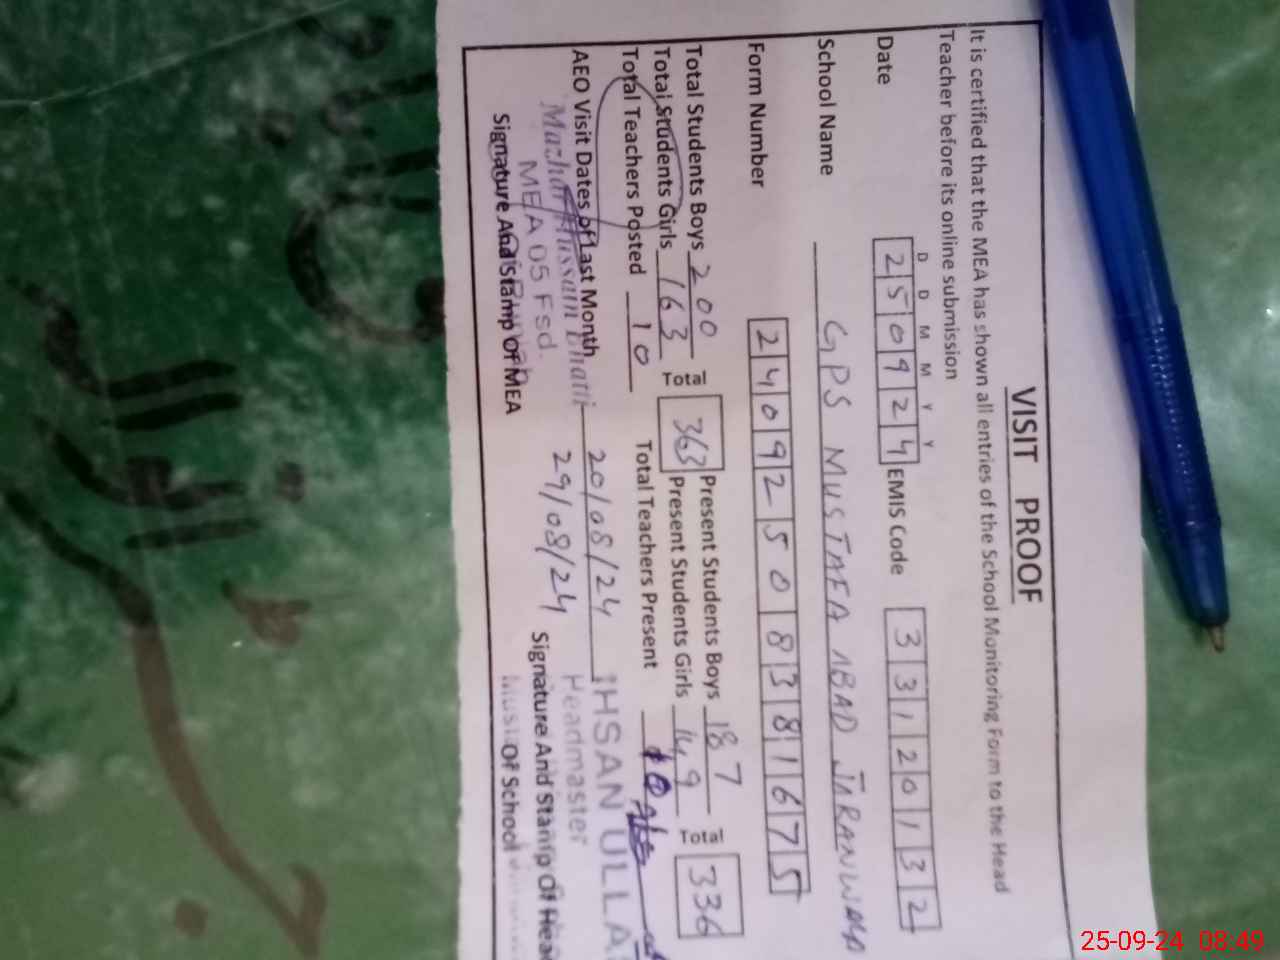 VISIT PROOF
It is certified that the MEA has shown all entries of the School Monitoring Form to the Head
Teacher before its online submission
D D M M Y Y
Date 250924 EMIS Code 33120132
School Name GPS MUSTAFA ABAD JARANWALA
Form Number 2409250838 1675
Total Students Boys 200 Total 363 Present Students Boys 187 Total 336
Total Students Girls 163 Present Students Girls 149
Total Teachers Posted 10 Total Teachers Present 10
AEO Visit Dates of Last Month 20/08/24
29/08/24
Mazhar Hussain Bhatti
MEA 05 Fsd.
Signature And Stamp Of MEA
IHSAN ULLAH
Headmaster
Signature And Stamp Of Head
Of School
25-09-24 08:49